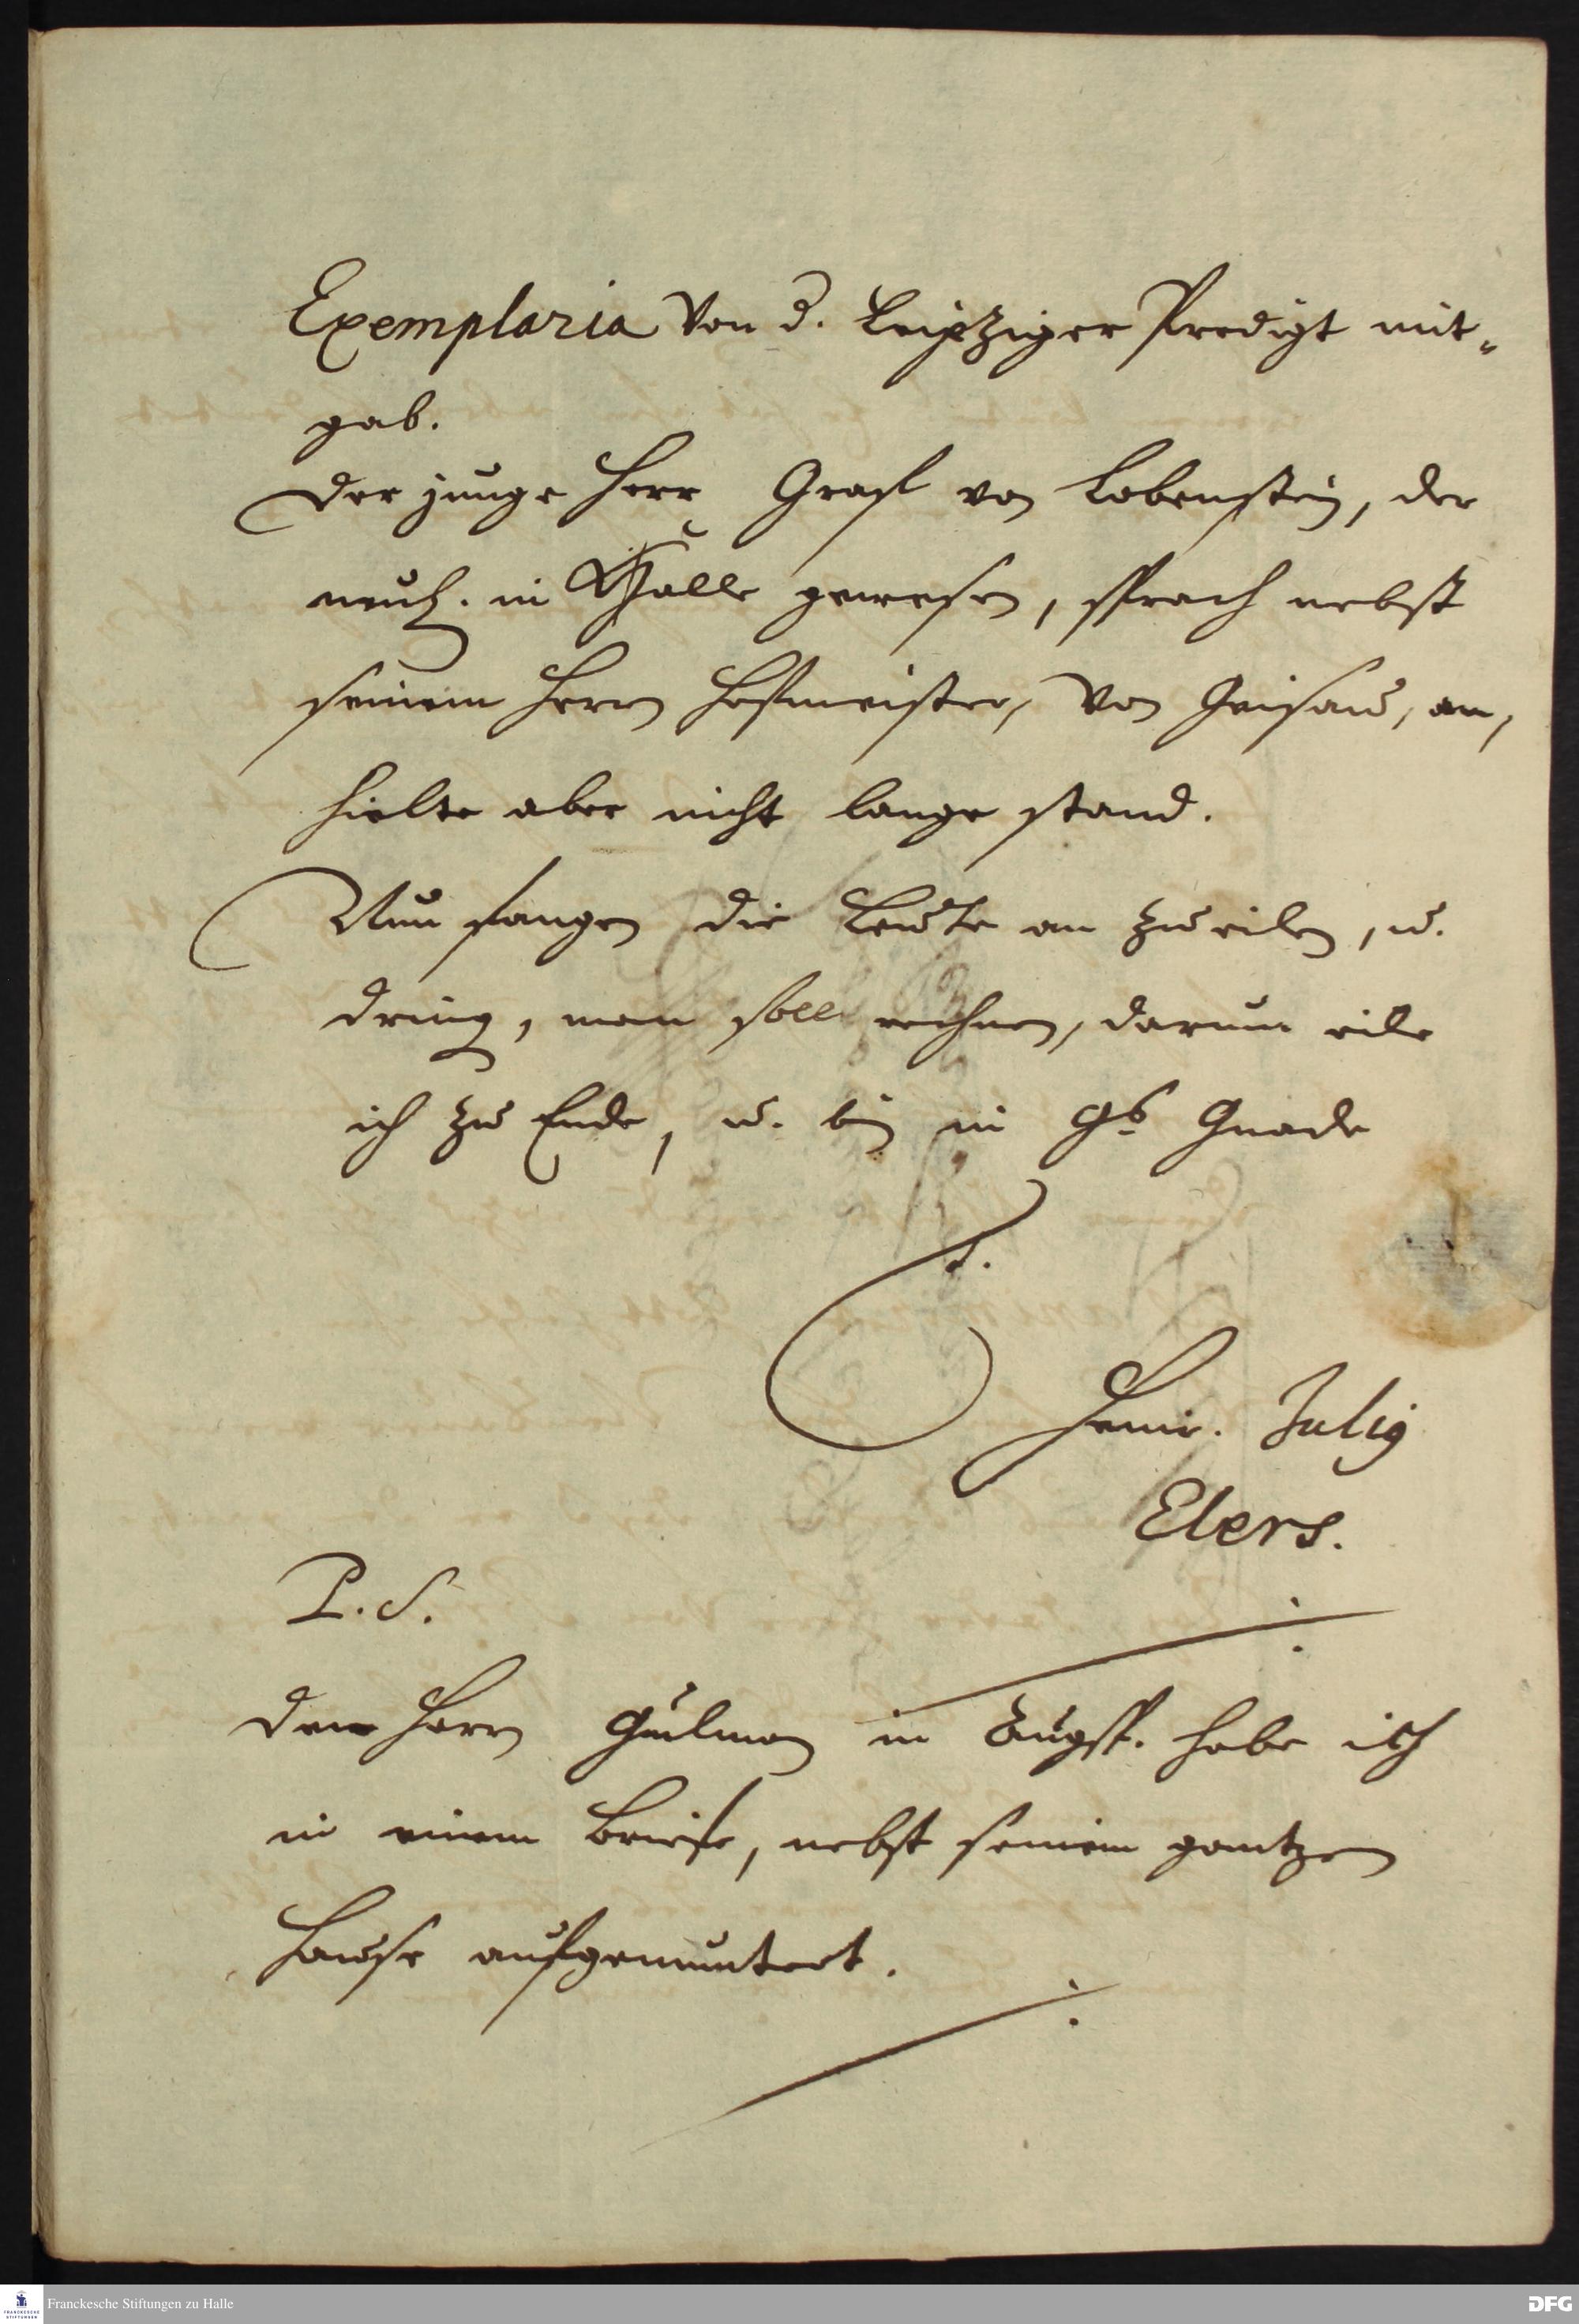 Exemplaria von d. Leipziger Predigt mit-
gab.
der junge Herr Graff von Lobenstein, der
neul. in Halle gewesen, sprach nebst
seinem Herrn Hofmeister, von Geusau, an,
hielte aber nicht lange stand.
Nun fangen die Leute an zu eilen, u.
dring., man soll rechnen, darum eile
ich zu Ende, u. bin in Gs Gnade
d.
Henr. Julius
Elers.
P. S.
dem Herrn Gulman in Augsp. habe ich
in einem Briefe, nebst seinem gantzen
Hause aufgemuntert.
Franckesche Stiftungen zu Halle
DFG